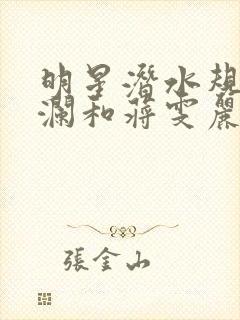 明星潛水規
瀾和蔣雯麗
張金山